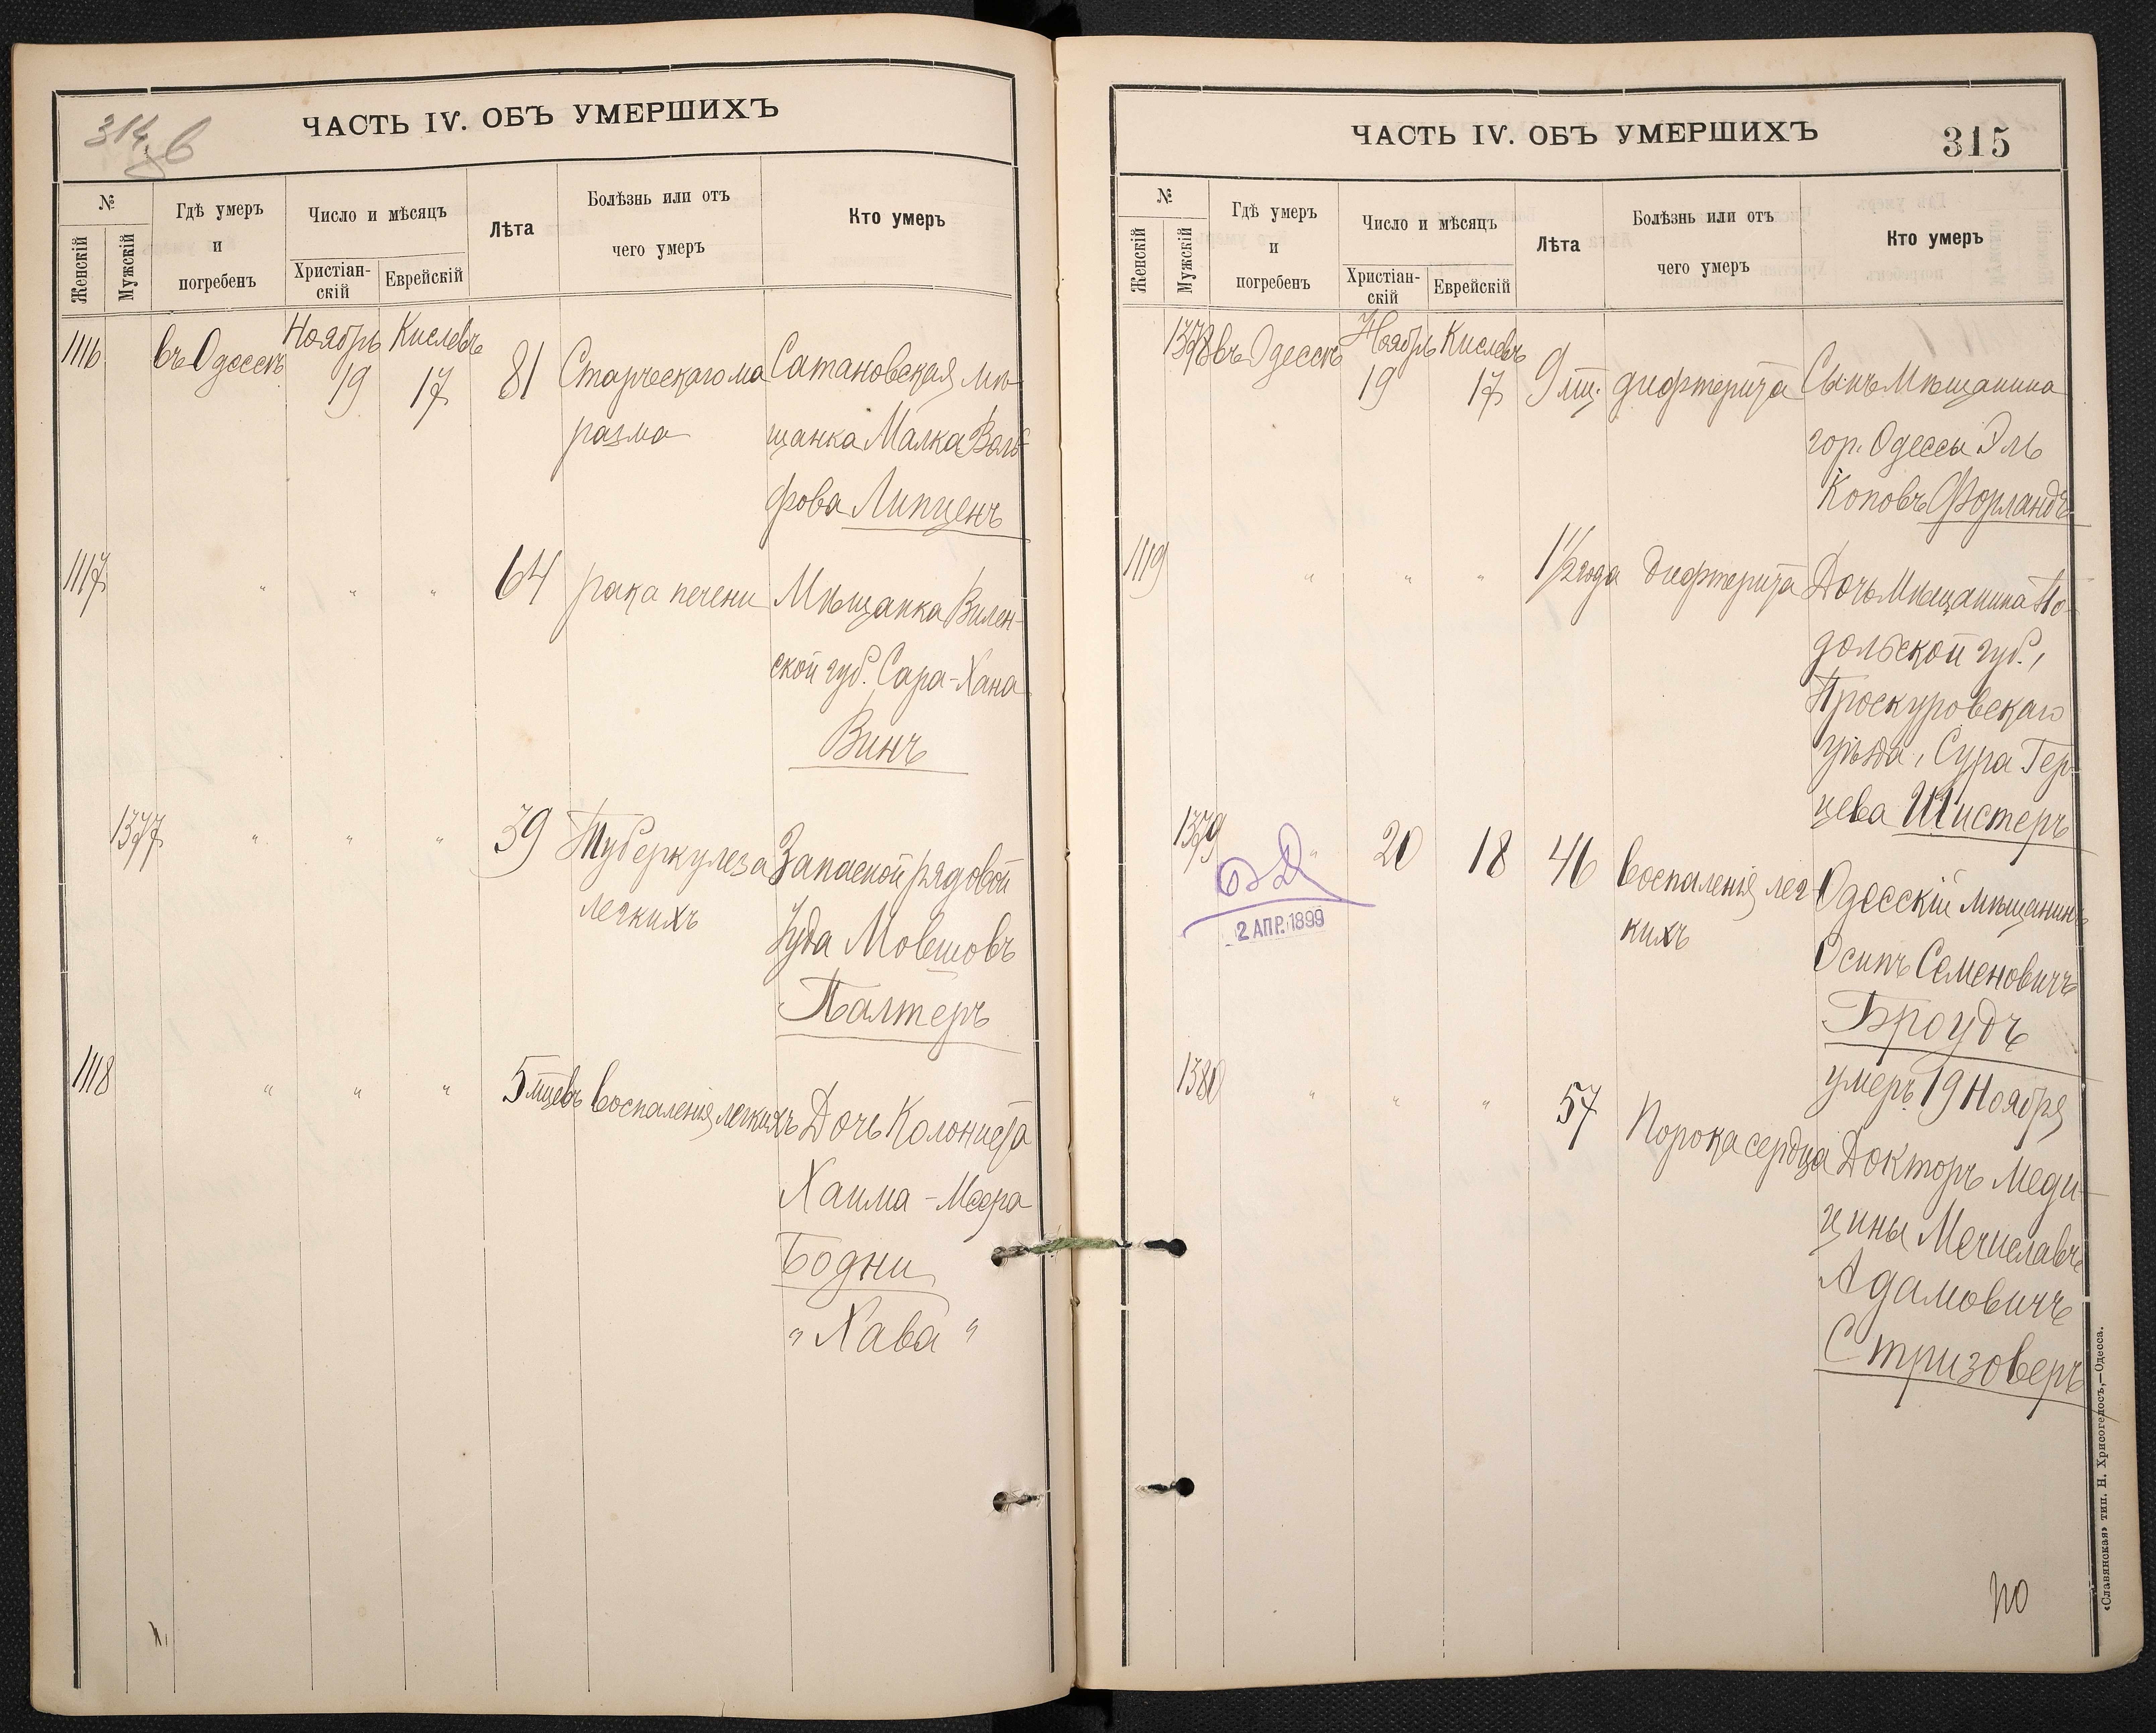 314 б
ЧАСТЬ IV. ОБЪ УМЕРШИХЪ
№
Женскій
Мужскій
Гдѣ умеръ
и
погребенъ
Число и мѣсяцъ
Христіан-
скій
Еврейскій
Лѣта
Болѣзнь или отъ
чего умеръ
Кто умеръ
1116 въ Одессѣ Ноябрь 19 Кислевъ 17 81 Старческаго ма Сатановская мѣ-
разма щанка Малка Воль-
фова Липценъ
1117 " " " 64 рака печени Мѣщанка Вилен-
ской губ. Сара-Хана
Винъ
1377 " " " 39 Туберкулеза Запасной рядовой
легкихъ Іуда Мовшовъ
Палтеръ
1118 " " " 5 мцевъ воспаленія легкихъ Дочь Колониста
Хаима-Меера
Бодни
"Хава"
ЧАСТЬ IV. ОБЪ УМЕРШИХЪ
315
№
Женскій
Мужскій
Гдѣ умеръ
и
погребенъ
Число и мѣсяцъ
Христіан-
скій
Еврейскій
Лѣта
Болѣзнь или отъ
чего умеръ
Кто умеръ
1378 въ Одессѣ Ноябрь 19 Кислевъ 17 9 мц. дифтерита Сынъ Мѣщанина
гор. Одессы Эль
Коповъ Форландъ
1119 " " " 1 1/2 года дифтерита Дочь Мѣщанина По-
дольской губ.,
Проскуровскаго
уѣзда, Сура Гер-
цева Шистеръ
1379 " 20 18 46 воспаленія лег- Одесскій мѣщанинъ
кихъ Осипъ Семеновичъ
2 АПР. 1899
Броудъ
умеръ 19 Ноября
1380 " " " 57 Порока сердца Докторъ Меди-
цины Мечиславъ
Адамовичъ
Стризоверъ
«Славянская» тип. Н. Хрисогелосъ,—Одесса.